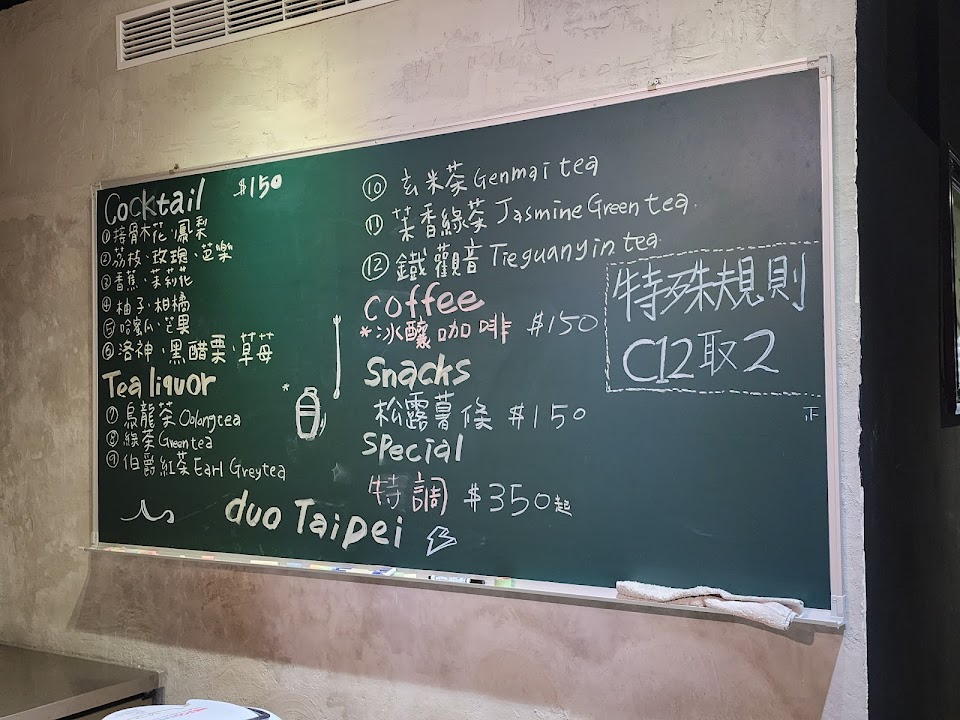 Cocktail $150
①接骨木花·鳳梨
②荔枝·玫瑰·芭樂
③香蕉·茉莉花
④柚子·柑橘
⑤哈蜜瓜·芒果
⑥洛神·黑醋栗·草莓
Tea liquor
⑦烏龍茶 Oolong tea
⑧綠茶 Green tea
⑨伯爵紅茶 Earl Grey tea
⑩玄米茶 Genmai tea
⑪茉香綠茶 Jasmine Green tea.
⑫鐵觀音 Tieguanyin tea.
coffee
*冰釀咖啡 $150
Snacks
松露薯條 $150
Special
特調 $350起
duo Taipei
特殊規則
C12取2
正